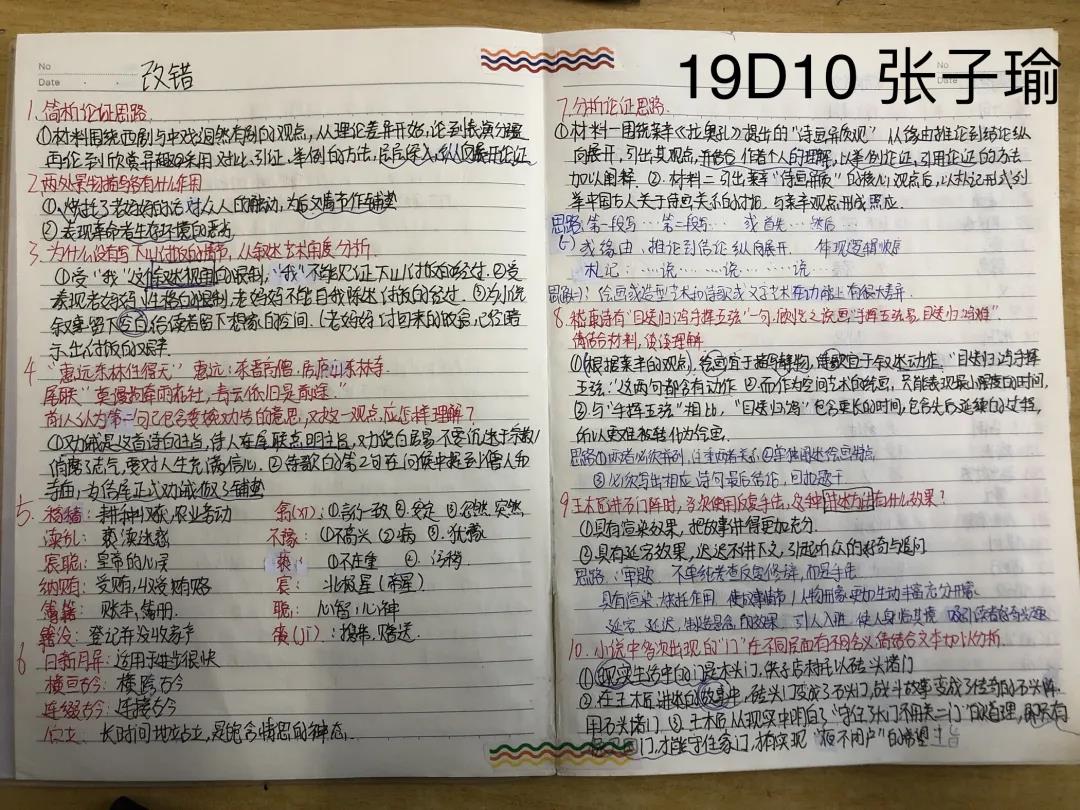 19D10 张子瑜
No
Date
改错
1. 简析论证思路
①材料围绕西剧与中戏迥然有别的观点,从理论差异开始,论到表演分疆
再论到欣赏异趣采用对比、引证、举例的方法,层层深入,纵向展开论证
2. 两处景物描写各有什么作用
①烘托了老妈妈的话对众人的触动,为后文情节作铺垫
②表现革命者生存环境的恶劣
3. 为什么没有写下山付饭的情节,从叙述艺术角度分析
①受"我"这个叙述视角的限制,"我"不能见证下山付饭的经过.②受
表现老妈妈性格的限制,老妈妈不能自我陈述付饭的经过.③为小说
叙事留下空白,给读者留下想象的空间.(老妈妈讨回来的故意,已经暗
示出付饭的艰辛.
4 "惠远东林住得无" 惠远:东晋高僧,居庐山东林寺.
尾联"莫漫拘牵雨花社,青云依旧是前途."
前人认为第二句已包含委婉劝告的意思,对这一观点,应怎样理解?
①劝诫是这首诗的主旨,诗人在尾联点明主旨,对劝使白居易不要沉迷于宗教/
消磨了志气,要对人生充满信心.②诗歌的第2句在问候中提到僧人和
寺庙,为后尾正式劝诫做了铺垫
5. 稼穑:耕种收获,农业劳动
渎乱:亵渎迷惑
宸聪:皇帝的心灵
纳贿:受贿,收受贿赂
簿籍:账本,簿册.
籍没:登记并没收家产
翕(xī):①一致 ②安定 ③忽然 突然
不豫:①不高兴 ②病 ③.犹豫
亵:①不庄重 ②.污秽
宸:北极星(帝星)
聪:心智;心神
赍(jī):携带,赠送.
6 日新月异:适用于进步很快
横亘古今:横跨古今
连缀古今:连接古今
伫立:长时间地站立,是饱含情思的神态.
7. 分析论证思路.
①材料一围绕莱辛《拉奥孔》提出的"诗画异质观"从缘由推论到结论纵
向展开,引出其观点,并结合作者个人的理解,以举例论证,引用论证的方法
加以阐释.②.材料二引出莱辛"诗画异质"的核心观点后,以札记形式列
举中国古人关于诗画关系的讨论.与莱辛观点形成照应.
思路:第一段写… 第二段写… 或首先… 然后…
(一)或缘由、推论到结论纵向展开. 体现逻辑顺序
札记:……说……说……说
思路(二):绘画或造型艺术和诗歌或文学艺术在功能上有很大差异.
8. 嵇康诗有"目送归鸿手挥五弦"一句.顾恺之说画"手挥五弦易,目送归鸿难".
请结合材料,谈谈理解
①(根据莱辛的观点),绘画宜于描写静物,诗歌宜于叙述动作."目送归鸿手挥
五弦."这两句都含有动作 ②而作为空间艺术的绘画,只能表现最小限度的时间,
③与"手挥五弦"相比,"目送归鸿"包含更长的时间,包含先后延续的过程,
所以更难被转化为绘画.
思路①两者必须并列,注重两者关系②要使用述绘画特点
③必须写出相应诗句最后结论,回扣题干
9 王木匠讲书门阵时,多次使用反复手法,这种讲述方法有什么效果?
①具有渲染效果,把故事讲得更加充分.
②具有延宕效果,迟迟不讲下文,引起听众的好奇与追问
思路:审题 不单纯考查反复修辞,而是手法
具有渲染、烘托作用 使故事情节/人物形象更加生动丰富充分开露
延宕、延迟,制造悬念的效果,引人入胜 使人身临其境 吸引读者好奇与兴趣
10. 小说中多次出现的"门"在不同层面有不同含义,请结合文本加以分析.
①现实生活中的门是木头门,铁子店村托以砖头堵门
②在王木匠讲述的故事中,砖头门变成了石头门,战斗故事变成了传奇的石头阵
用石头堵门.③王木匠从现实中明白了"守住了大门不用关二门"的道理,即只有
门,才能守住家门,才有实现"夜不闭户"的希望